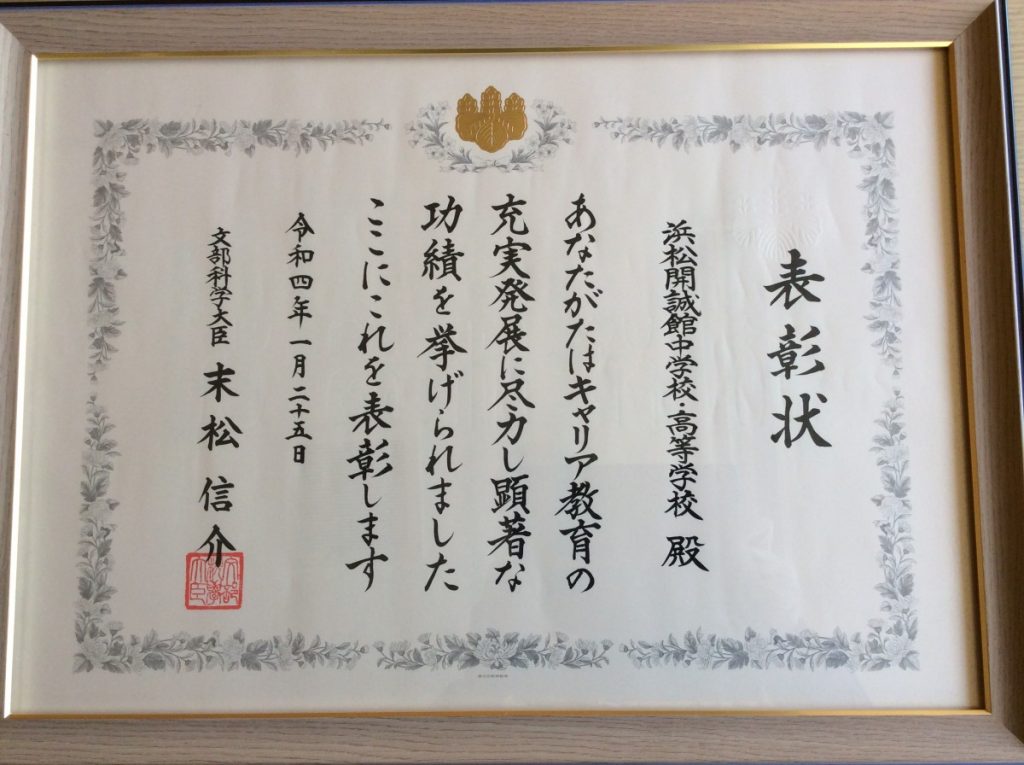 表彰状
浜松開誠館中学校・高等学校 殿
あなたがたはキャリア教育の
充実発展に尽力し顕著な
功績を挙げられました
ここにこれを表彰します
令和四年一月二十五日
文部科学大臣 末松信介